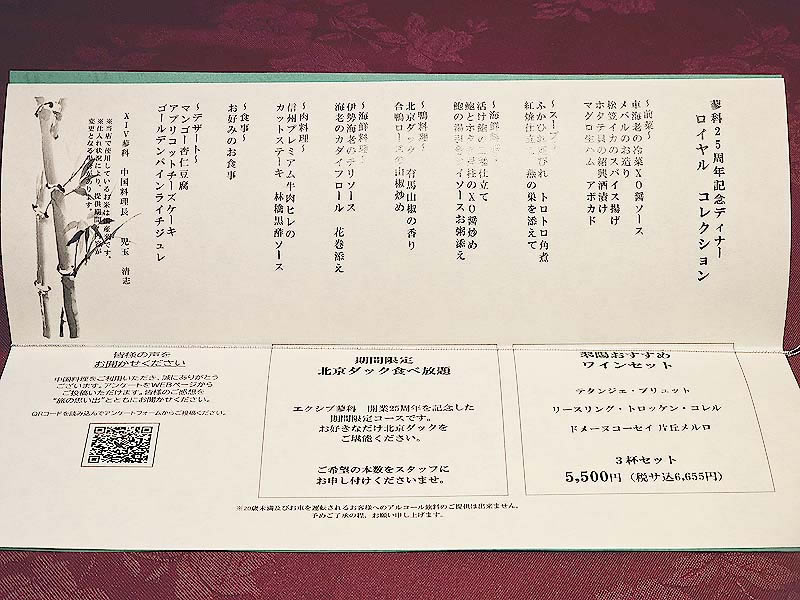 蓼科25周年記念ディナー
ロイヤル コレクション
~前菜~
車海老の冷菜XO醤ソース
メバルのお造り
松笠イカのスパイス揚げ
ホタテ貝の紹興酒漬け
マグロ生ハム アボカド
~スープ
ふかひれ
びれ トロトロ角煮
紅焼仕立
燕の巣を添えて
~海鮮
活け鮑の
仕立て
鮑とホタ
柱のXO醤炒め
鮑の
イソースお粥添え
~鴨料理~
北京ダック 有馬山椒の香り
合鴨ロースの山椒炒め
~海鮮料理~
伊勢海老のチリソース
海老のカダイフロール 花巻添え
~肉料理~
信州プレミアム牛肉ヒレの
カットステーキ 林檎黒酢ソース
~食事~
お好みのお食事
~デザート~
マンゴー杏仁豆腐
アプリコットチーズケーキ
ゴールデンパインライチジュレ
XIV蓼科 中国料理長 児玉 清志
※当店で使用しているお米は
産です。
※仕入れ状況により、提供期間
容が
変更となる
があります。
皆様の声を
お聞かせください
中国料理をご利用いただき、誠にありがとう
ございます。アンケートをWEBページから
ご投稿いただけます。皆様のご感想を
"旅の思い出"とともにお聞かせください。
QRコードを読み込んでアンケートフォームからご投稿ください。
期間限定
北京ダック食べ放題
エクシブ蓼科 開業25周年を記念した
期間限定コースです。
お好きなだけ北京ダックを
ご堪能ください。
ご希望の本数をスタッフに
お申し付けくださいませ。
おすすめ
ワインセット
テタンジェ・ブリュット
リースリング・トロッケン・コレル
ドメーヌコーセイ 片丘メルロ
3杯セット
5,500円 (税サ込6,655円)
※20歳未満及びお車を運転されるお客様へのアルコール飲料のご提供は出来ません。
予めご了承の程、お願い申し上げます。